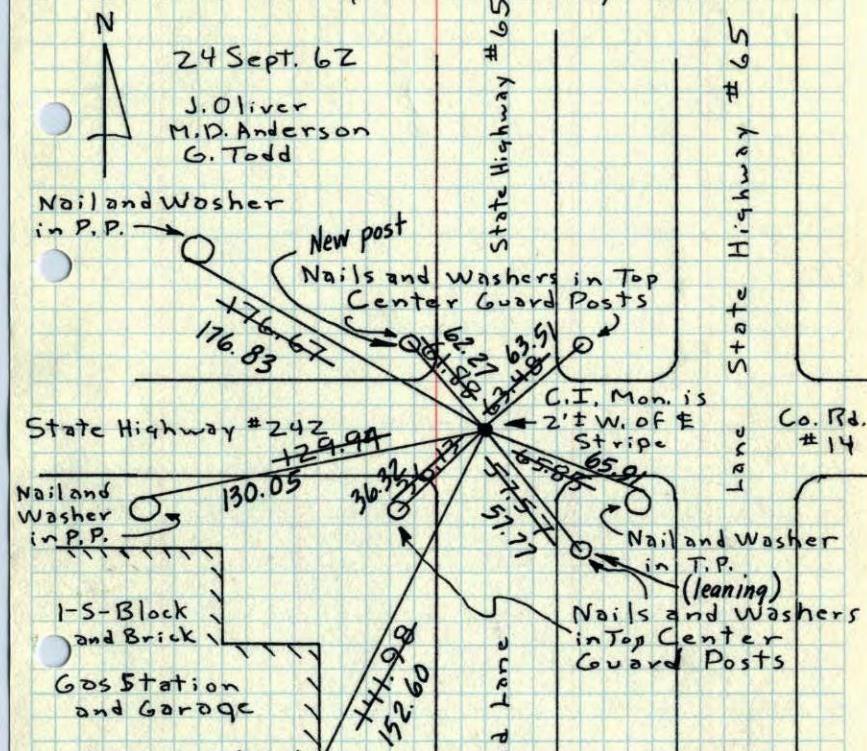 N
24 Sept. 62
J. Oliver
M.D. Anderson
G. Todd
State Highway #65
State Highway #65
Nail and Washer
in P.P.
New post
Nails and Washers in Top
Center Guard Posts
176.67
176.83
62.27
61.88
63.51
63.48
C.I. Mon. is
2'± W. of ℄
Stripe
Co. Rd.
#14
State Highway #242
129.94
130.05
36.32
36.13
65.85
65.91
57.57
57.77
Lane
Nail and
Washer
in P.P.
Nail and Washer
in T.P.
(leaning)
Nails and Washers
in Top Center
Guard Posts
1-S-Block
and Brick
Gas Station
and Garage
141.98
152.60
d Lane